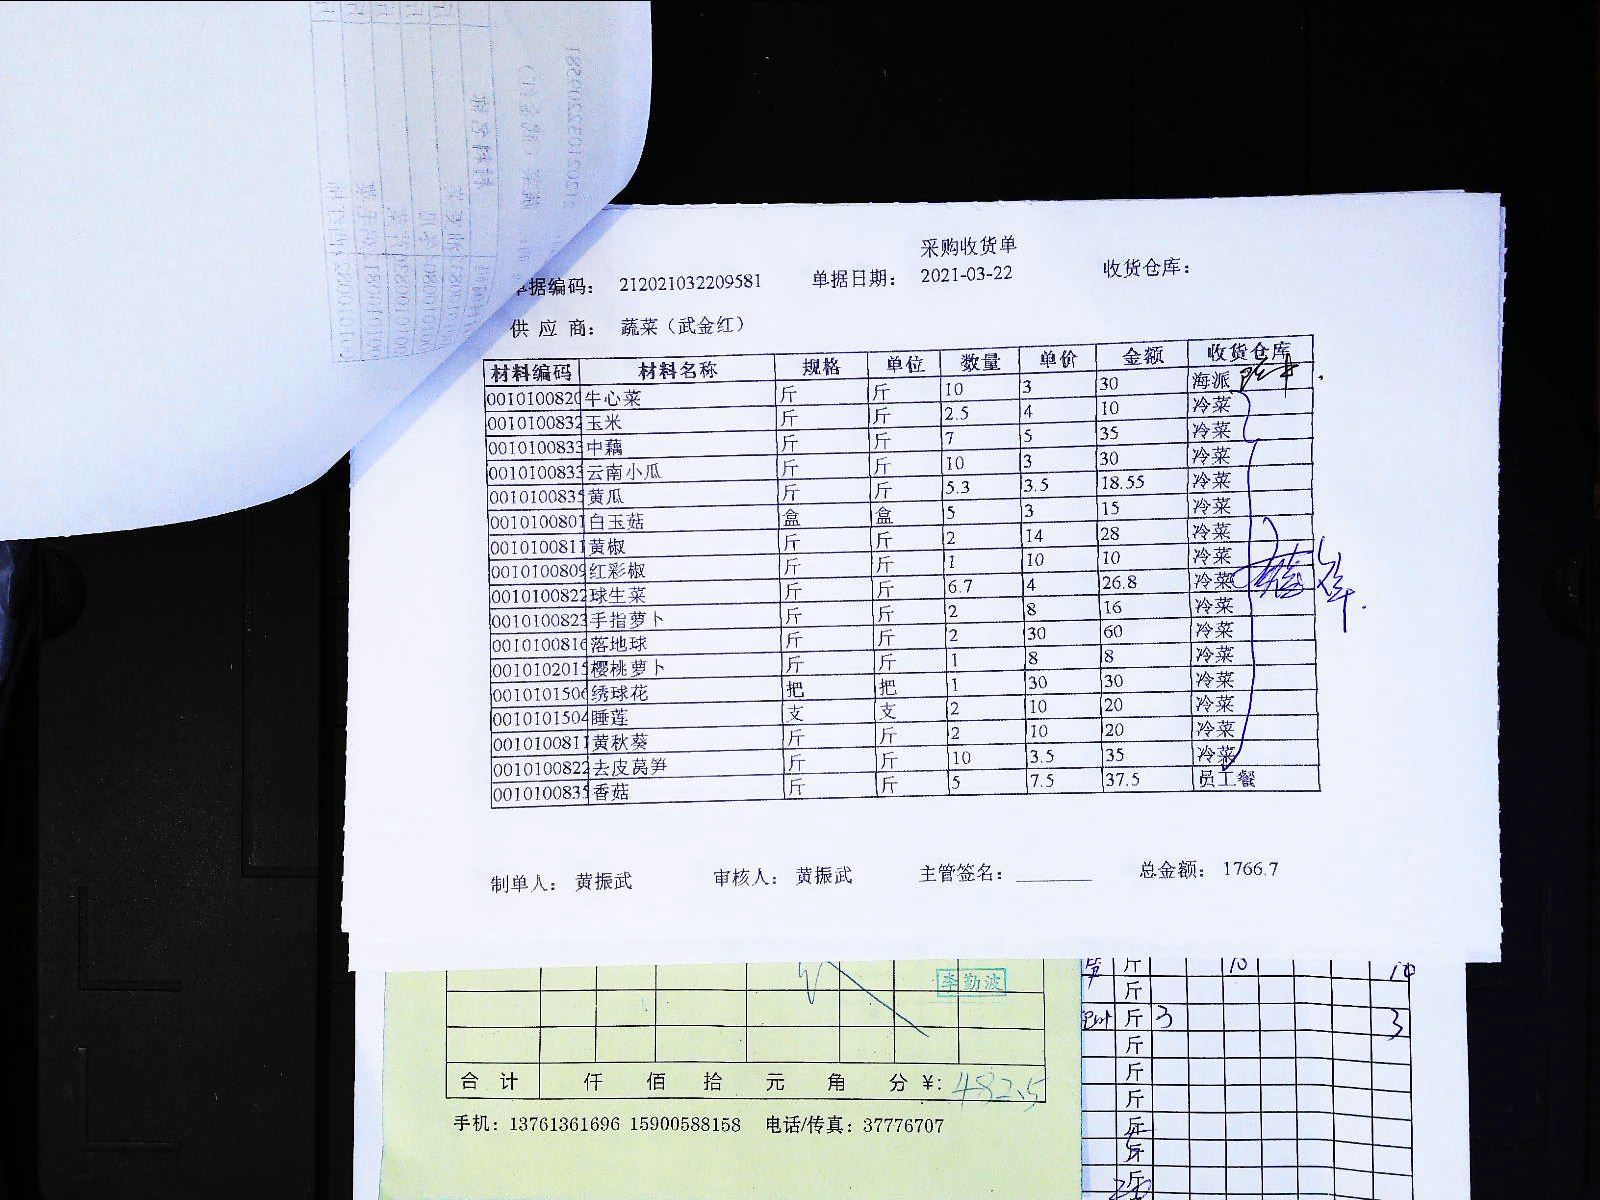 采购收货单
单据编码： 212021032209581 单据日期： 2021-03-22 收货仓库：
供 应 商： 蔬菜（武金红）
材料编码 材料名称 规格 单位 数量 单价 金额 收货仓库
0010100820 牛心菜 斤 斤 10 3 30 海派
0010100832 玉米 斤 斤 2.5 4 10 冷菜
0010100833 中藕 斤 斤 7 5 35 冷菜
0010100833 云南小瓜 斤 斤 10 3 30 冷菜
0010100835 黄瓜 斤 斤 5.3 3.5 18.55 冷菜
0010100801 白玉菇 盒 盒 5 3 15 冷菜
0010100811 黄椒 斤 斤 2 14 28 冷菜
0010100809 红彩椒 斤 斤 1 10 10 冷菜
0010100822 球生菜 斤 斤 6.7 4 26.8 冷菜
0010100823 手指萝卜 斤 斤 2 8 16 冷菜
0010100816 落地球 斤 斤 2 30 60 冷菜
0010102015 樱桃萝卜 斤 斤 1 8 8 冷菜
0010101506 绣球花 把 把 1 30 30 冷菜
0010101504 睡莲 支 支 2 10 20 冷菜
0010100811 黄秋葵 斤 斤 2 10 20 冷菜
0010100822 去皮莴笋 斤 斤 10 3.5 35 冷菜
0010100835 香菇 斤 斤 5 7.5 37.5 员工餐
制单人： 黄振武 审核人： 黄振武 主管签名： 总金额： 1766.7
李勤波
合 计 仟 佰 拾 元 角 分 ¥: 482.5
手机：13761361696 15900588158 电话/传真：37776707
斤 10 10
斤
斤 3 3
斤
斤
斤
斤
斤
斤